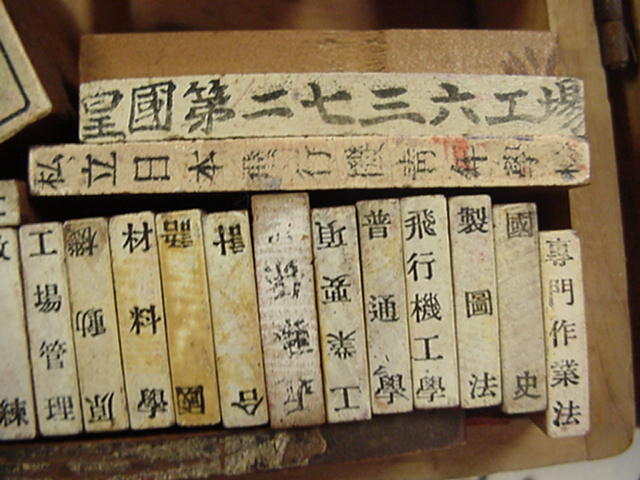 皇國第二七三六工場
私立日本飛行機青年學校
練
工場管理
原動機
材料學
國語
合計
工業要項
普通學
飛行機工學
製圖法
國史
專門作業法